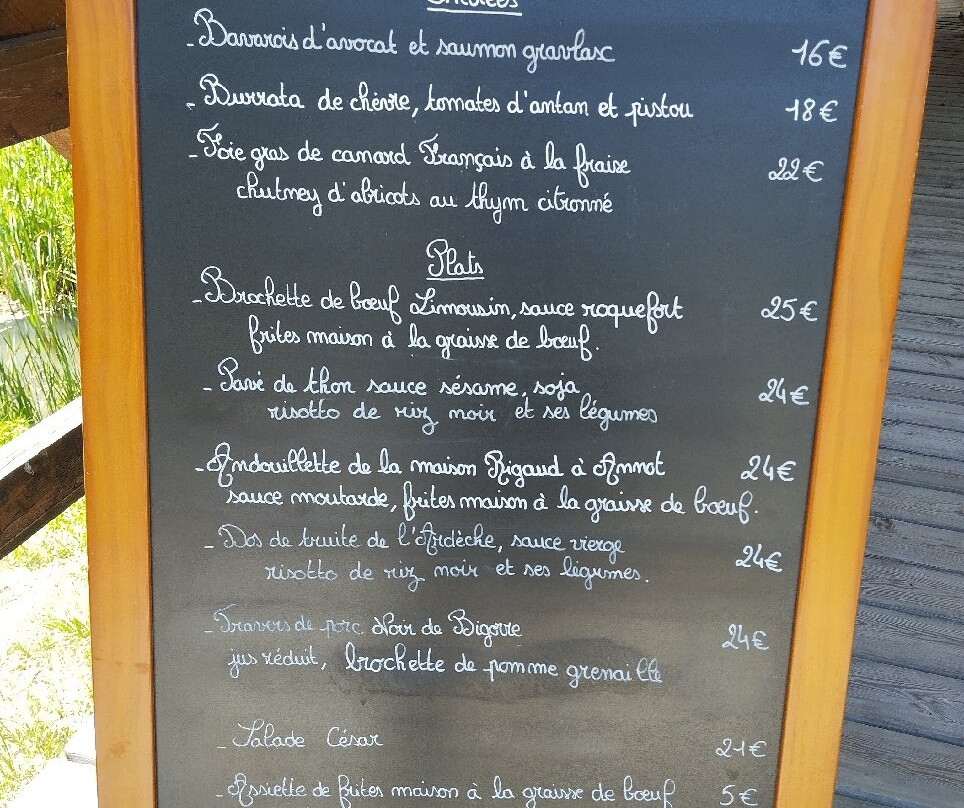 Entrées
- Bavarois d'avocat et saumon gravlasc 16€
- Burrata de chèvre, tomates d'antan et pistou 18€
- Foie gras de canard Français à la fraise 22€
chutney d'abricots au thym citronné
Plats
- Brochette de bœuf Limousin, sauce roquefort 25€
frites maison à la graisse de bœuf.
- Pavé de thon sauce sésame, soja 24€
risotto de riz noir et ses légumes
- Andouillette de la maison Rigaud à Annot 24€
sauce moutarde, frites maison à la graisse de bœuf.
- Dos de truite de l'Ardèche, sauce vierge 24€
risotto de riz noir et ses légumes.
- Travers de porc Noir de Bigorre 24€
jus réduit, brochette de pomme grenaille
- Salade César 21€
- Assiette de frites maison à la graisse de bœuf 5€